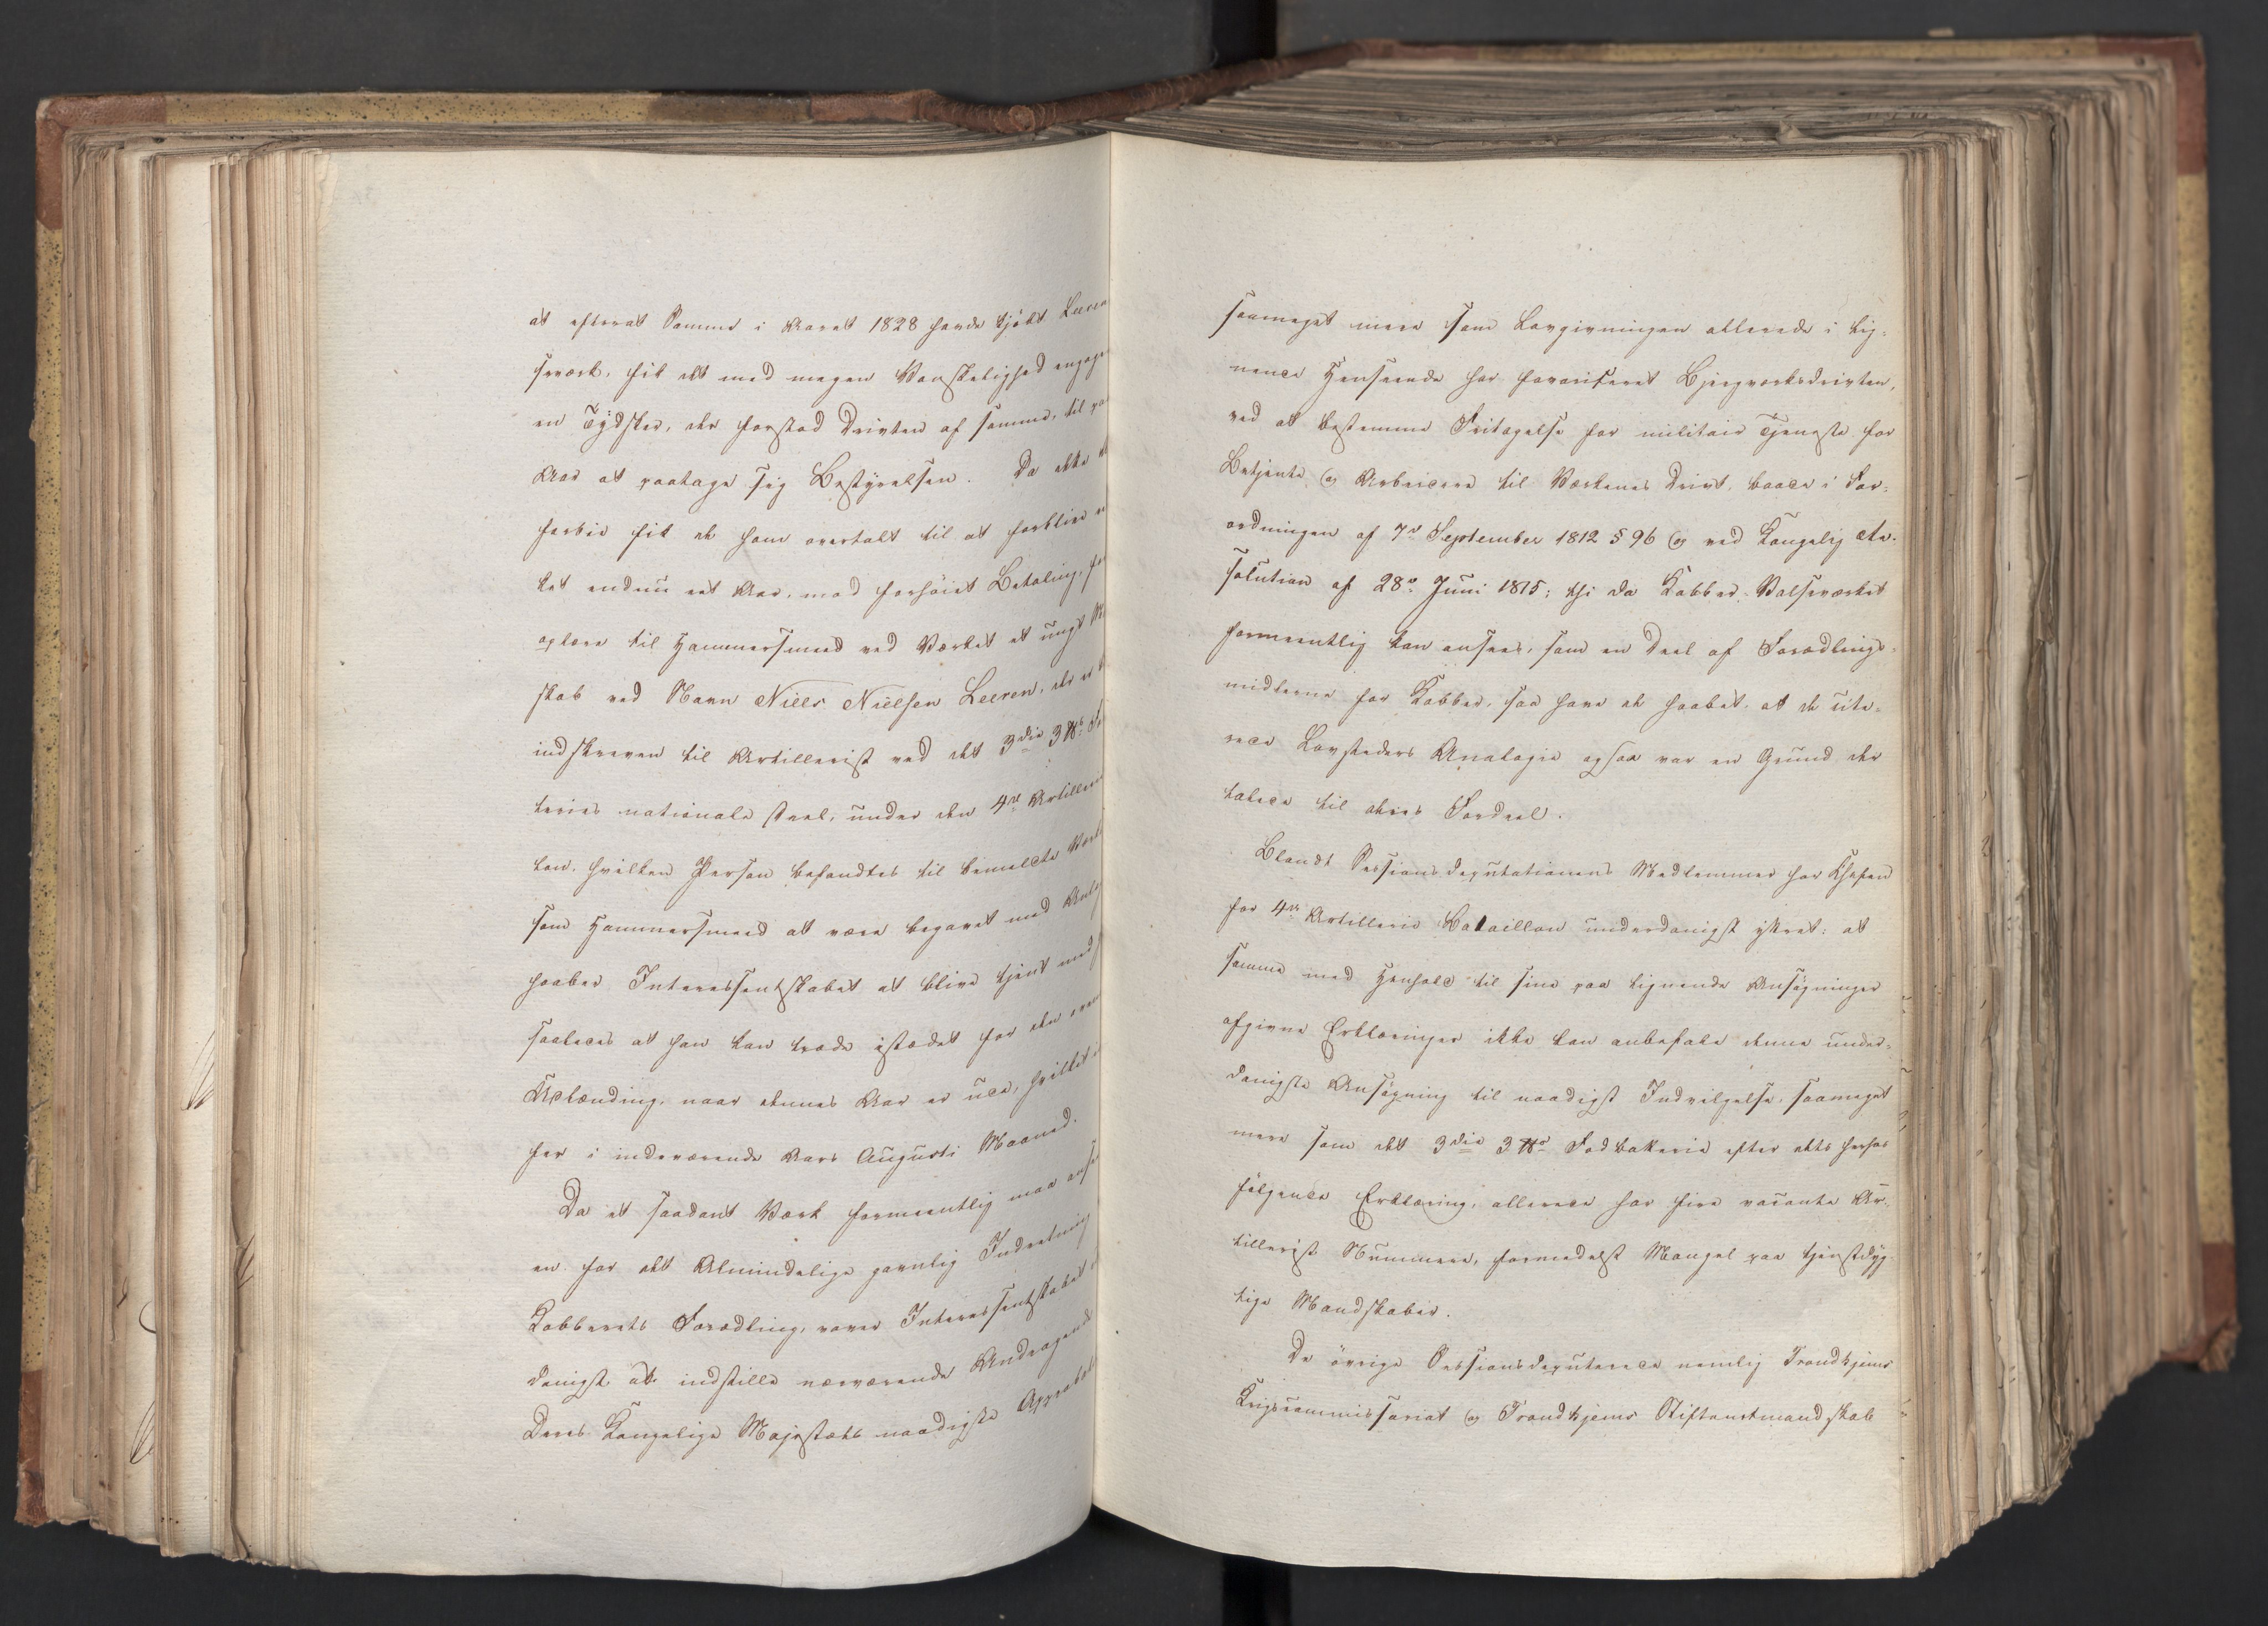 at efterat Samme i Aaret 1828 havde kjøbt Leeren
sværk, fik det med megen Vanskelighed engage
en Tydsker, der forstod Driften af samme, til paa
Aar at paatage sig Bestyrelsen. Da dette
forbie fik de ham overtalt til at forblive
ket endnu eet Aar, mod forhøiet Betaling, for
oplære til Hammersmed ved Værket et ungt
skab ved Navn Niels Nielsen Leeren, der er
indskreven til Artillerist ved det 3die 3 ℔ Fo
teries nationale Deel, under den 4de Artillerie
lon, hvilken Person befandtes til bemeldte Værk
som Hammersmed at være begavet med Anlæg
haaber Interessentskabet at blive tjent med
saaledes at han kan træde istedet for den oven
Udlænding, naar dennes Aar er ude, hvilket
her i indeværende Aars Augusti Maaned.
Da et saadant Værk formeentlig maa anse
en for det Almindelige gavnlig Indretning
Kobberets Forædling, vover Interessentskabet
danigst at indstille nærværende Andragende
Deres Kongelige Majestæts naadigste Approbat
saameget mere som Lovgivningen allerede i lig-
nende Henseende har favoriseret Bjergværksdriften,
ved at bestemme Fritagelse for militair Tjeneste for
Betjente og Arbeidere til Værkenes Drivt, baade i For-
ordningen af 7de September 1812 § 96 og ved Kongelig Re-
solution af 28de Juni 1815; thi da Kobber-Valseværket
formeentlig kan ansees, som en Deel af Forædlings-
midlerne for Kobber, saa have de haabet, at de cite-
rede Lovsteders Analogie ogsaa var en Grund der
talede til deres Fordeel.
Blandt Sessionsdeputationens Medlemmer har Chefen
for 4de Artillerie Bataillon underdanigst yttret: at
samme med Henhold til sine paa lignende Ansøgninger
afgivne Erklæringer ikke kan anbefale denne under-
danigste Ansøgning til naadigst Indvilgelse, saameget
mere som det 3die 3 ℔ Fodbatterie efter dets herhos
følgende Erklæring, allerede har fire vacante Ar-
tillerist Nummere, formedelst Mangel paa tjenstdyg-
tige Mandskaber.
De øvrige Sessionsdeputerede nemlig Trondhjems
Krigscommissariat og Trondhjems Stiftamtmandskab